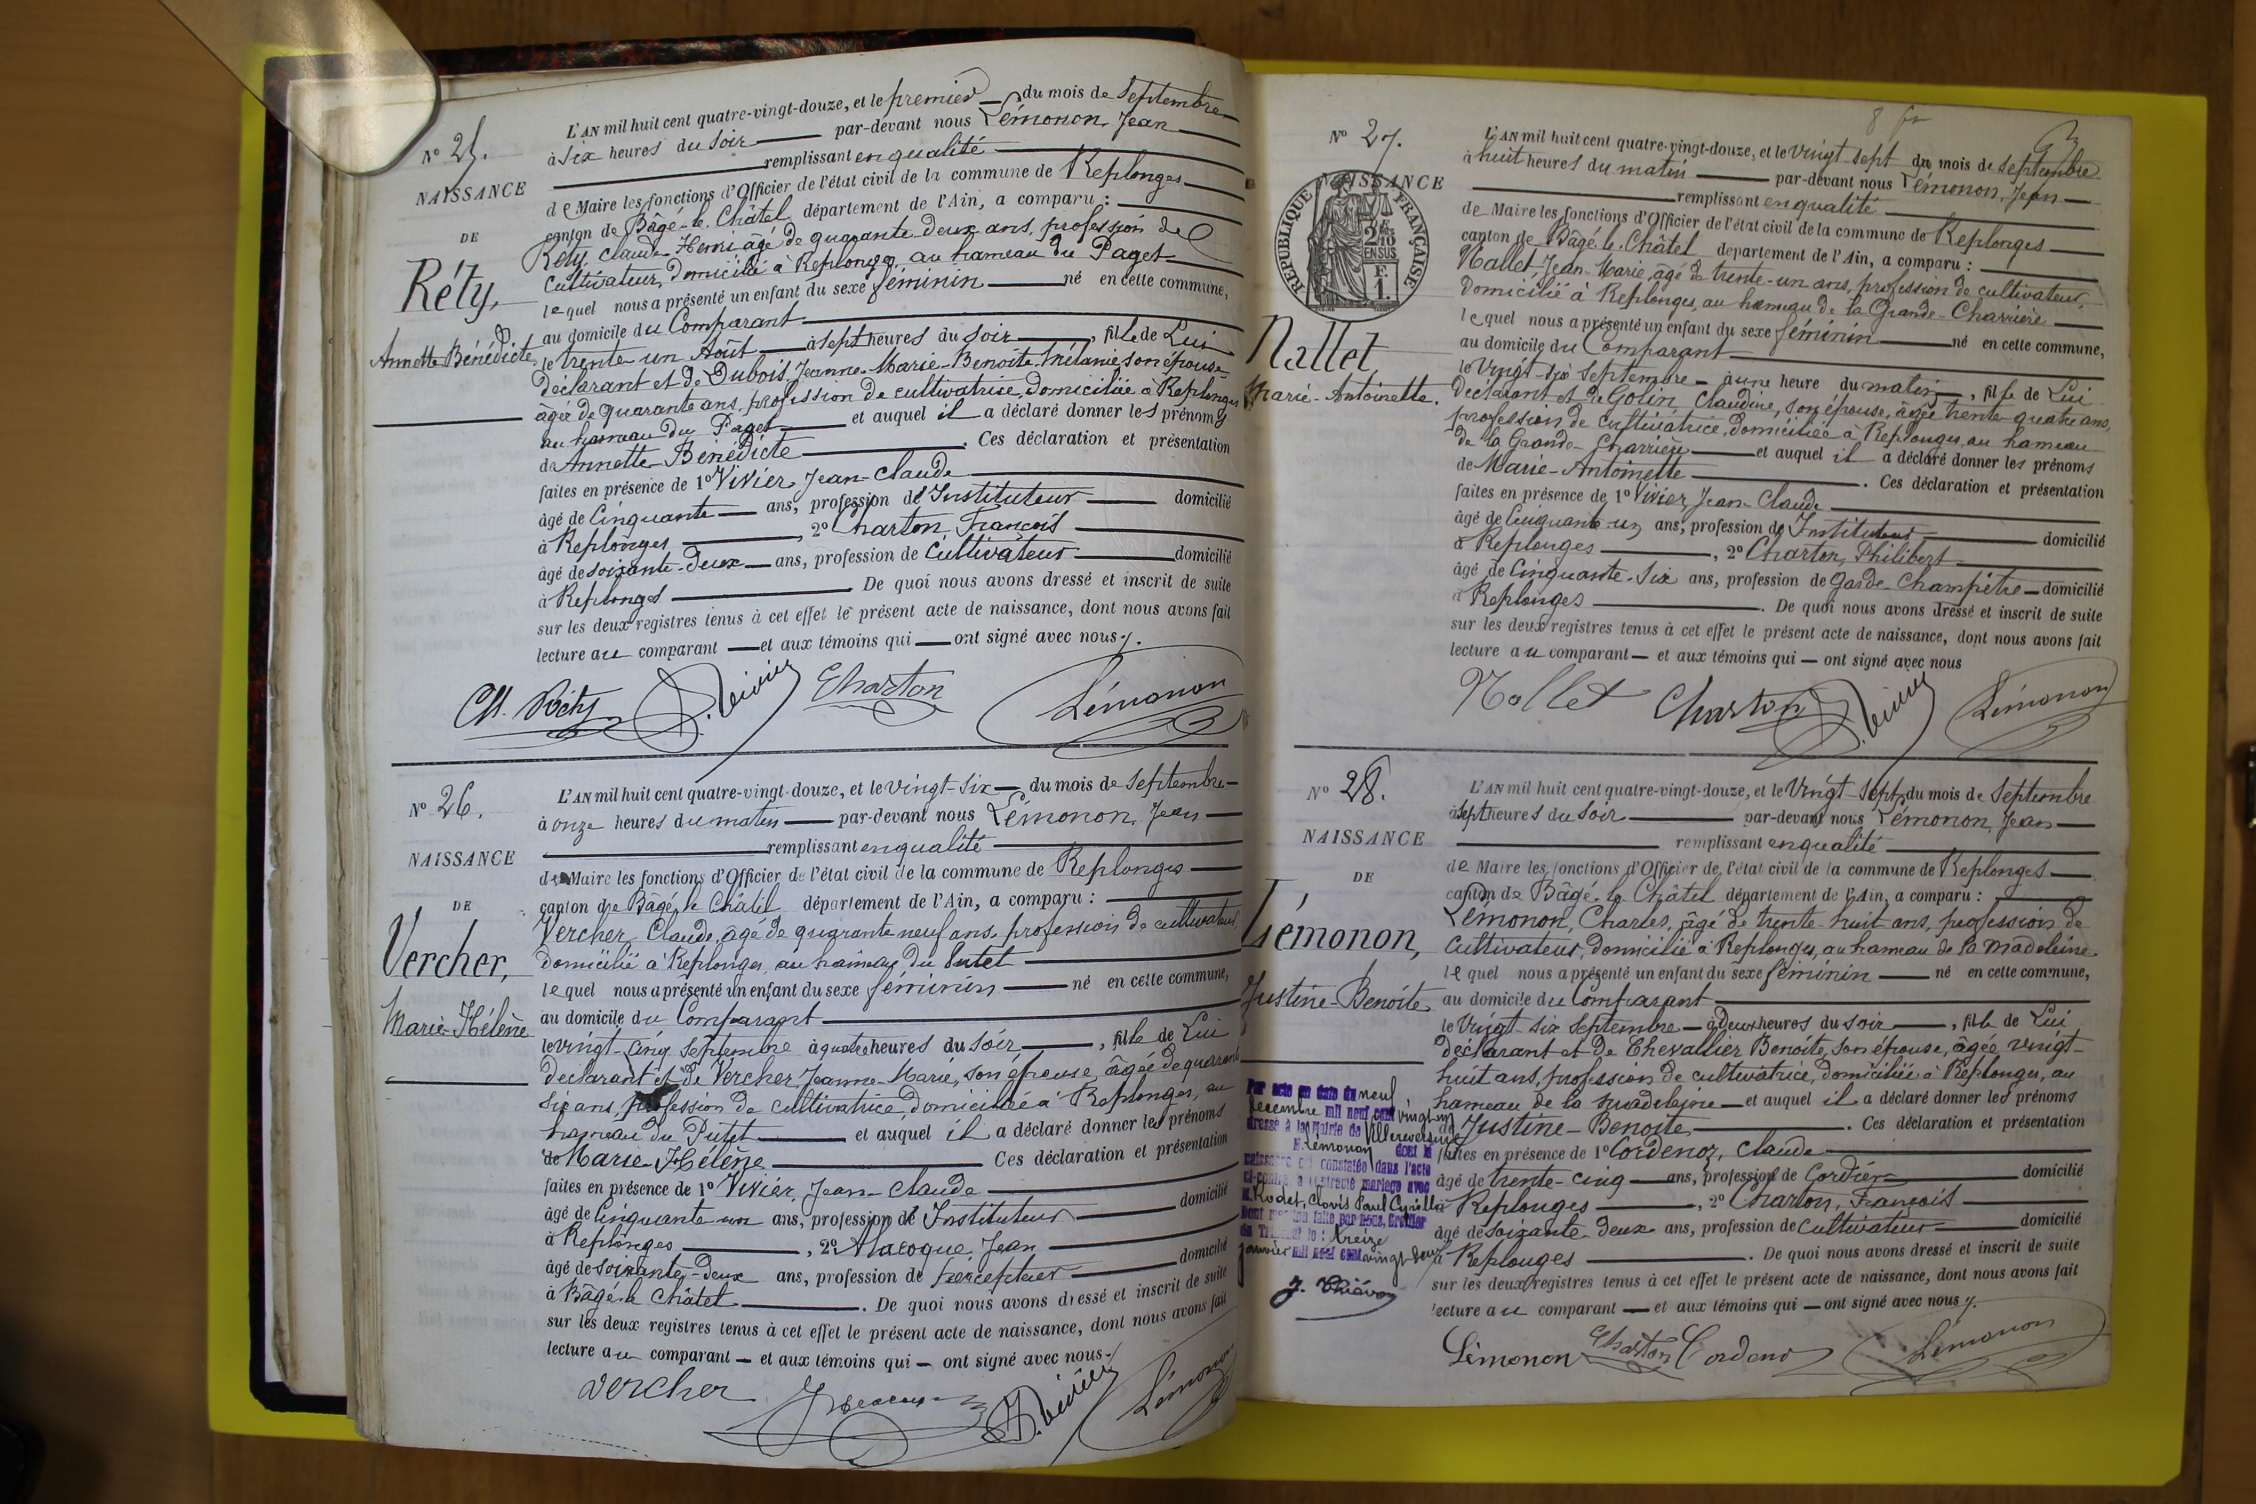 N° 25.
NAISSANCE
DE
Réty,
Annette-Bénédicte
L'AN mil huit cent quatre-vingt-douze, et le premier du mois de Septembre
à six heures du soir par-devant nous Lémonon, Jean
remplissant en qualité
de Maire les fonctions d'Officier de l'état civil de la commune de Replonges
canton de Bâgé-le-Châtel département de l'Ain, a comparu :
Réty, Claude-Henri âgé de quarante-deux ans, profession de
cultivateur, domicilié à Replonges au hameau du Paget
lequel nous a présenté un enfant du sexe féminin né en cette commune,
au domicile du Comparant
le trente-un Août à sept heures du soir, fille de Lui
déclarant et de Dubois, Jeanne-Marie-Benoîte-Mélanie son épouse
âgée de quarante ans, profession de cultivatrice, domiciliée à Replonges
au hameau du Paget et auquel il a déclaré donner les prénoms
de Annette-Bénédicte. Ces déclaration et présentation
faites en présence de 1° Vivier, Jean-Claude
âgé de cinquante ans, profession de Instituteur domicilié
à Replonges, 2° Charton, François
âgé de soixante-deux ans, profession de cultivateur domicilié
à Replonges. De quoi nous avons dressé et inscrit de suite
sur les deux registres tenus à cet effet le présent acte de naissance, dont nous avons fait
lecture au comparant et aux témoins qui ont signé avec nous.
CH. Réty Vivier Charton Lémonon
N° 26.
NAISSANCE
DE
Vercher,
Marie-Hélène
L'AN mil huit cent quatre-vingt-douze, et le vingt-six du mois de Septembre
à onze heures du matin par-devant nous Lémonon, Jean
remplissant en qualité
de Maire les fonctions d'Officier de l'état civil de la commune de Replonges
canton de Bâgé-le-Châtel département de l'Ain, a comparu :
Vercher, Claude, âgé de quarante neuf ans, profession de cultivateur,
domicilié à Replonges, au hameau du Putet
lequel nous a présenté un enfant du sexe féminin né en cette commune,
au domicile du Comparant
le vingt-cinq Septembre à quatre heures du soir, fille de Lui
déclarant et de Vercher, Jeanne-Marie, son épouse, âgée de quarante
six ans, profession de cultivatrice, domiciliée à Replonges, au
hameau du Putet et auquel il a déclaré donner les prénoms
de Marie-Hélène Ces déclaration et présentation
faites en présence de 1° Vivier, Jean-Claude
âgé de cinquante un ans, profession de Instituteur domicilié
à Replonges, 2° Alacoque, Jean
âgé de soixante-deux ans, profession de percepteur domicilié
à Bâgé-le-Châtel. De quoi nous avons dressé et inscrit de suite
sur les deux registres tenus à cet effet le présent acte de naissance, dont nous avons fait
lecture au comparant et aux témoins qui ont signé avec nous.
Vercher Vivier Lémonon
8 fr
N° 27.
NAISSANCE
RÉPUBLIQUE FRANÇAISE
2/10 EN SUS
F. 1.
Nallet
Marie-Antoinette.
L'AN mil huit cent quatre-vingt-douze, et le vingt-sept du mois de septembre
à huit heures du matin par-devant nous Lémonon, Jean
remplissant en qualité
de Maire les fonctions d'Officier de l'état civil de la commune de Replonges
canton de Bâgé-le-Châtel département de l'Ain, a comparu :
Nallet, Jean-Marie, âgé de trente-un ans, profession de cultivateur,
domicilié à Replonges, au hameau de la Grande-Charrière
lequel nous a présenté un enfant du sexe féminin né en cette commune,
au domicile du Comparant
le vingt-six Septembre à une heure du matin, fille de Lui
déclarant et de Gotin Claudine, son épouse, âgée trente-quatre ans,
profession de cultivatrice, domiciliée à Replonges, au hameau
de la Grande-Charrière et auquel il a déclaré donner les prénoms
de Marie-Antoinette. Ces déclaration et présentation
faites en présence de 1° Vivier, Jean-Claude
âgé de cinquante-un ans, profession de Instituteur domicilié
à Replonges, 2° Charton, Philibert
âgé de cinquante-six ans, profession de Garde-Champêtre domicilié
à Replonges. De quoi nous avons dressé et inscrit de suite
sur les deux registres tenus à cet effet le présent acte de naissance, dont nous avons fait
lecture au comparant et aux témoins qui ont signé avec nous
Nallet Charton Vivier Lémonon
N° 28.
NAISSANCE
DE
Lémonon,
Justine-Benoîte
L'AN mil huit cent quatre-vingt-douze, et le vingt-sept du mois de Septembre
à sept heures du soir par-devant nous Lémonon, Jean
remplissant en qualité
de Maire les fonctions d'Officier de l'état civil de la commune de Replonges
canton de Bâgé-le-Châtel département de l'Ain, a comparu :
Lémonon, Charles, âgé de trente-huit ans, profession de
cultivateur, domicilié à Replonges, au hameau de la Madeleine
lequel nous a présenté un enfant du sexe féminin né en cette commune,
au domicile du Comparant
le vingt-six Septembre à deux heures du soir, fille de Lui
déclarant et de Chevallier Benoîte, son épouse, âgée vingt-
huit ans, profession de cultivatrice, domiciliée à Replonges, au
hameau de la Madeleine et auquel il a déclaré donner les prénoms
de Justine-Benoîte. Ces déclaration et présentation
faites en présence de 1° Cordenoz, Claude
âgé de trente-cinq ans, profession de Cordier domicilié
à Replonges, 2° Charton, François
âgé de soixante-deux ans, profession de cultivateur domicilié
à Replonges. De quoi nous avons dressé et inscrit de suite
sur les deux registres tenus à cet effet le présent acte de naissance, dont nous avons fait
lecture au comparant et aux témoins qui ont signé avec nous.
Lémonon Charton Cordenoz Lémonon
Par acte en date du neuf
décembre mil neuf cent vingt-un
dressé à la Mairie de Villereversure
Lémonon dont la
naissance est constatée dans l'acte
ci-contre a contracté mariage avec
M. Rodet, Clovis Paul Cyrille
Dont mention faite par nous, Greffier
du Tribunal le : treize
janvier mil neuf cent vingt-deux